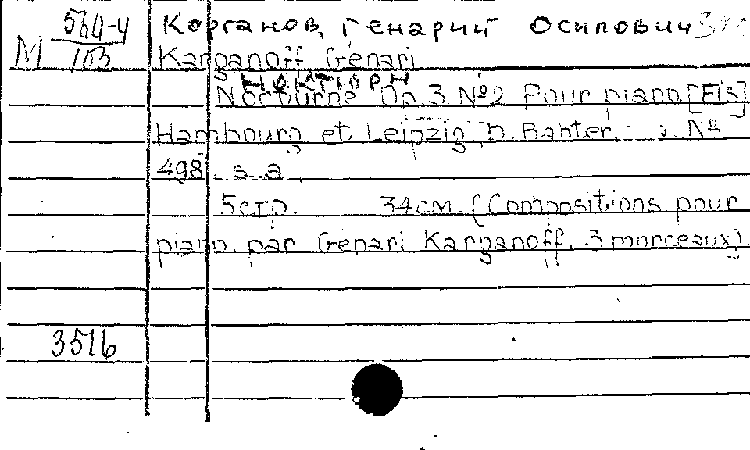 М 564-4/103 Корганов, Генарий Осипович
Karganoff Génari
Ноктюрн
Nocturne Op. 3 №2 Pour piano [Fis]
Hambourg et Leipzig, D. Rahter, №
498. s. a.
5 стр. 34 см. (Compositions pour
piano par Génari Karganoff. 3 morceaux)
3516